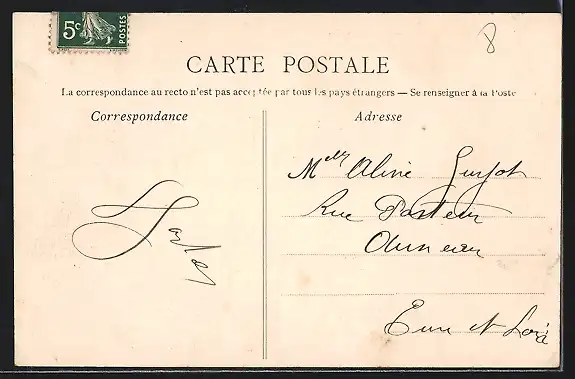 5c
POSTES
8
CARTE POSTALE
La correspondance au recto n'est pas acceptée par tous les pays étrangers — Se renseigner à la Poste
Correspondance
Adresse
Melle Aline
Rue Pasteur
Auneau
Eure et Loir